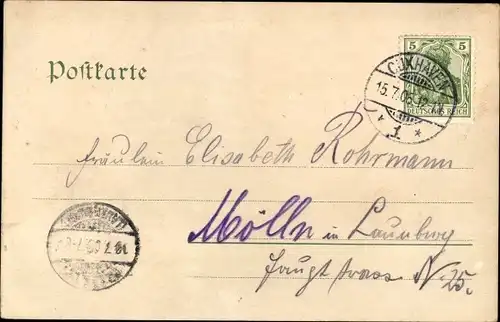 Postkarte
5 5
DEUTSCHES REICH
CUXHAVEN
15.7.05
* 1. *
Fräulein Elisabeth Rohrmann
Mölln in Lauenburg
Hauptstrasse N. 25.